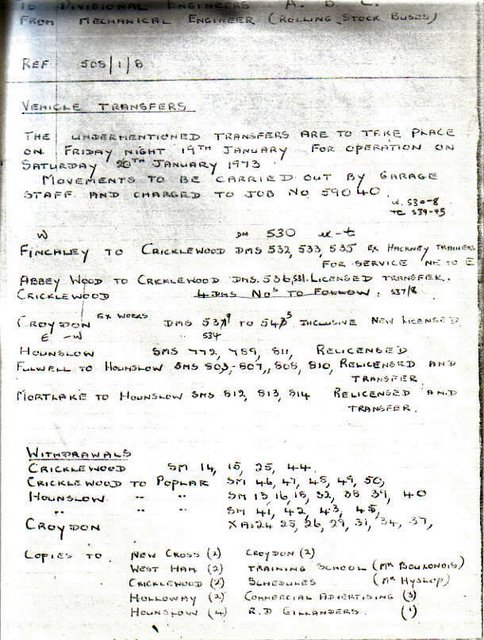 TO DIVISIONAL ENGINEERS A. B. C.
FROM MECHANICAL ENGINEER (ROLLING STOCK BUSES)
REF 508/1/8
VEHICLE TRANSFERS
THE UNDERMENTIONED TRANSFERS ARE TO TAKE PLACE
ON FRIDAY NIGHT 19TH JANUARY FOR OPERATION ON
SATURDAY 20TH JANUARY 1973.
MOVEMENTS TO BE CARRIED OUT BY GARAGE
STAFF AND CHARGED TO JOB NO 59040.
W. 530-8
TC 539-45
W DM 530
FINCHLEY TO CRICKLEWOOD DMS 532, 533, 535 EX HACKNEY TRAINERS
FOR SERVICE
ABBEY WOOD TO CRICKLEWOOD DMS. 536, 531. LICENSED TRANSFER.
CRICKLEWOOD 4 DMS NOS TO FOLLOW. 537/8
CROYDON EX WORKS DMS 539 TO 545 INCLUSIVE NEW LICENSED
E -W 534
HOUNSLOW SMS 772, 789, 811, RELICENSED
FULWELL TO HOUNSLOW SMS 803, 807, 808, 810, RELICENSED AND
TRANSFER
MORTLAKE TO HOUNSLOW SMS 812, 813, 814 RELICENSED AND
TRANSFER.
WITHDRAWALS
CRICKLEWOOD SM 14, 15, 25, 44.
CRICKLEWOOD TO POPLAR SM 46, 47, 48, 49, 50,
HOUNSLOW " " SM 13 16, 18, 32, 38 39, 40
" " " SM 41, 42, 43, 45,
CROYDON XA 24 25, 26, 29, 31, 34, 37,
COPIES TO NEW CROSS (2) CROYDON (2)
WEST HAM (2) TRAINING SCHOOL (MR BOULONOIS)
CRICKLEWOOD (2) SCHEDULES (MR HYSLOP)
HOLLOWAY (2) COMMERCIAL ADVERTISING (3)
HOUNSLOW (4) R.D GILLANDERS. (1)